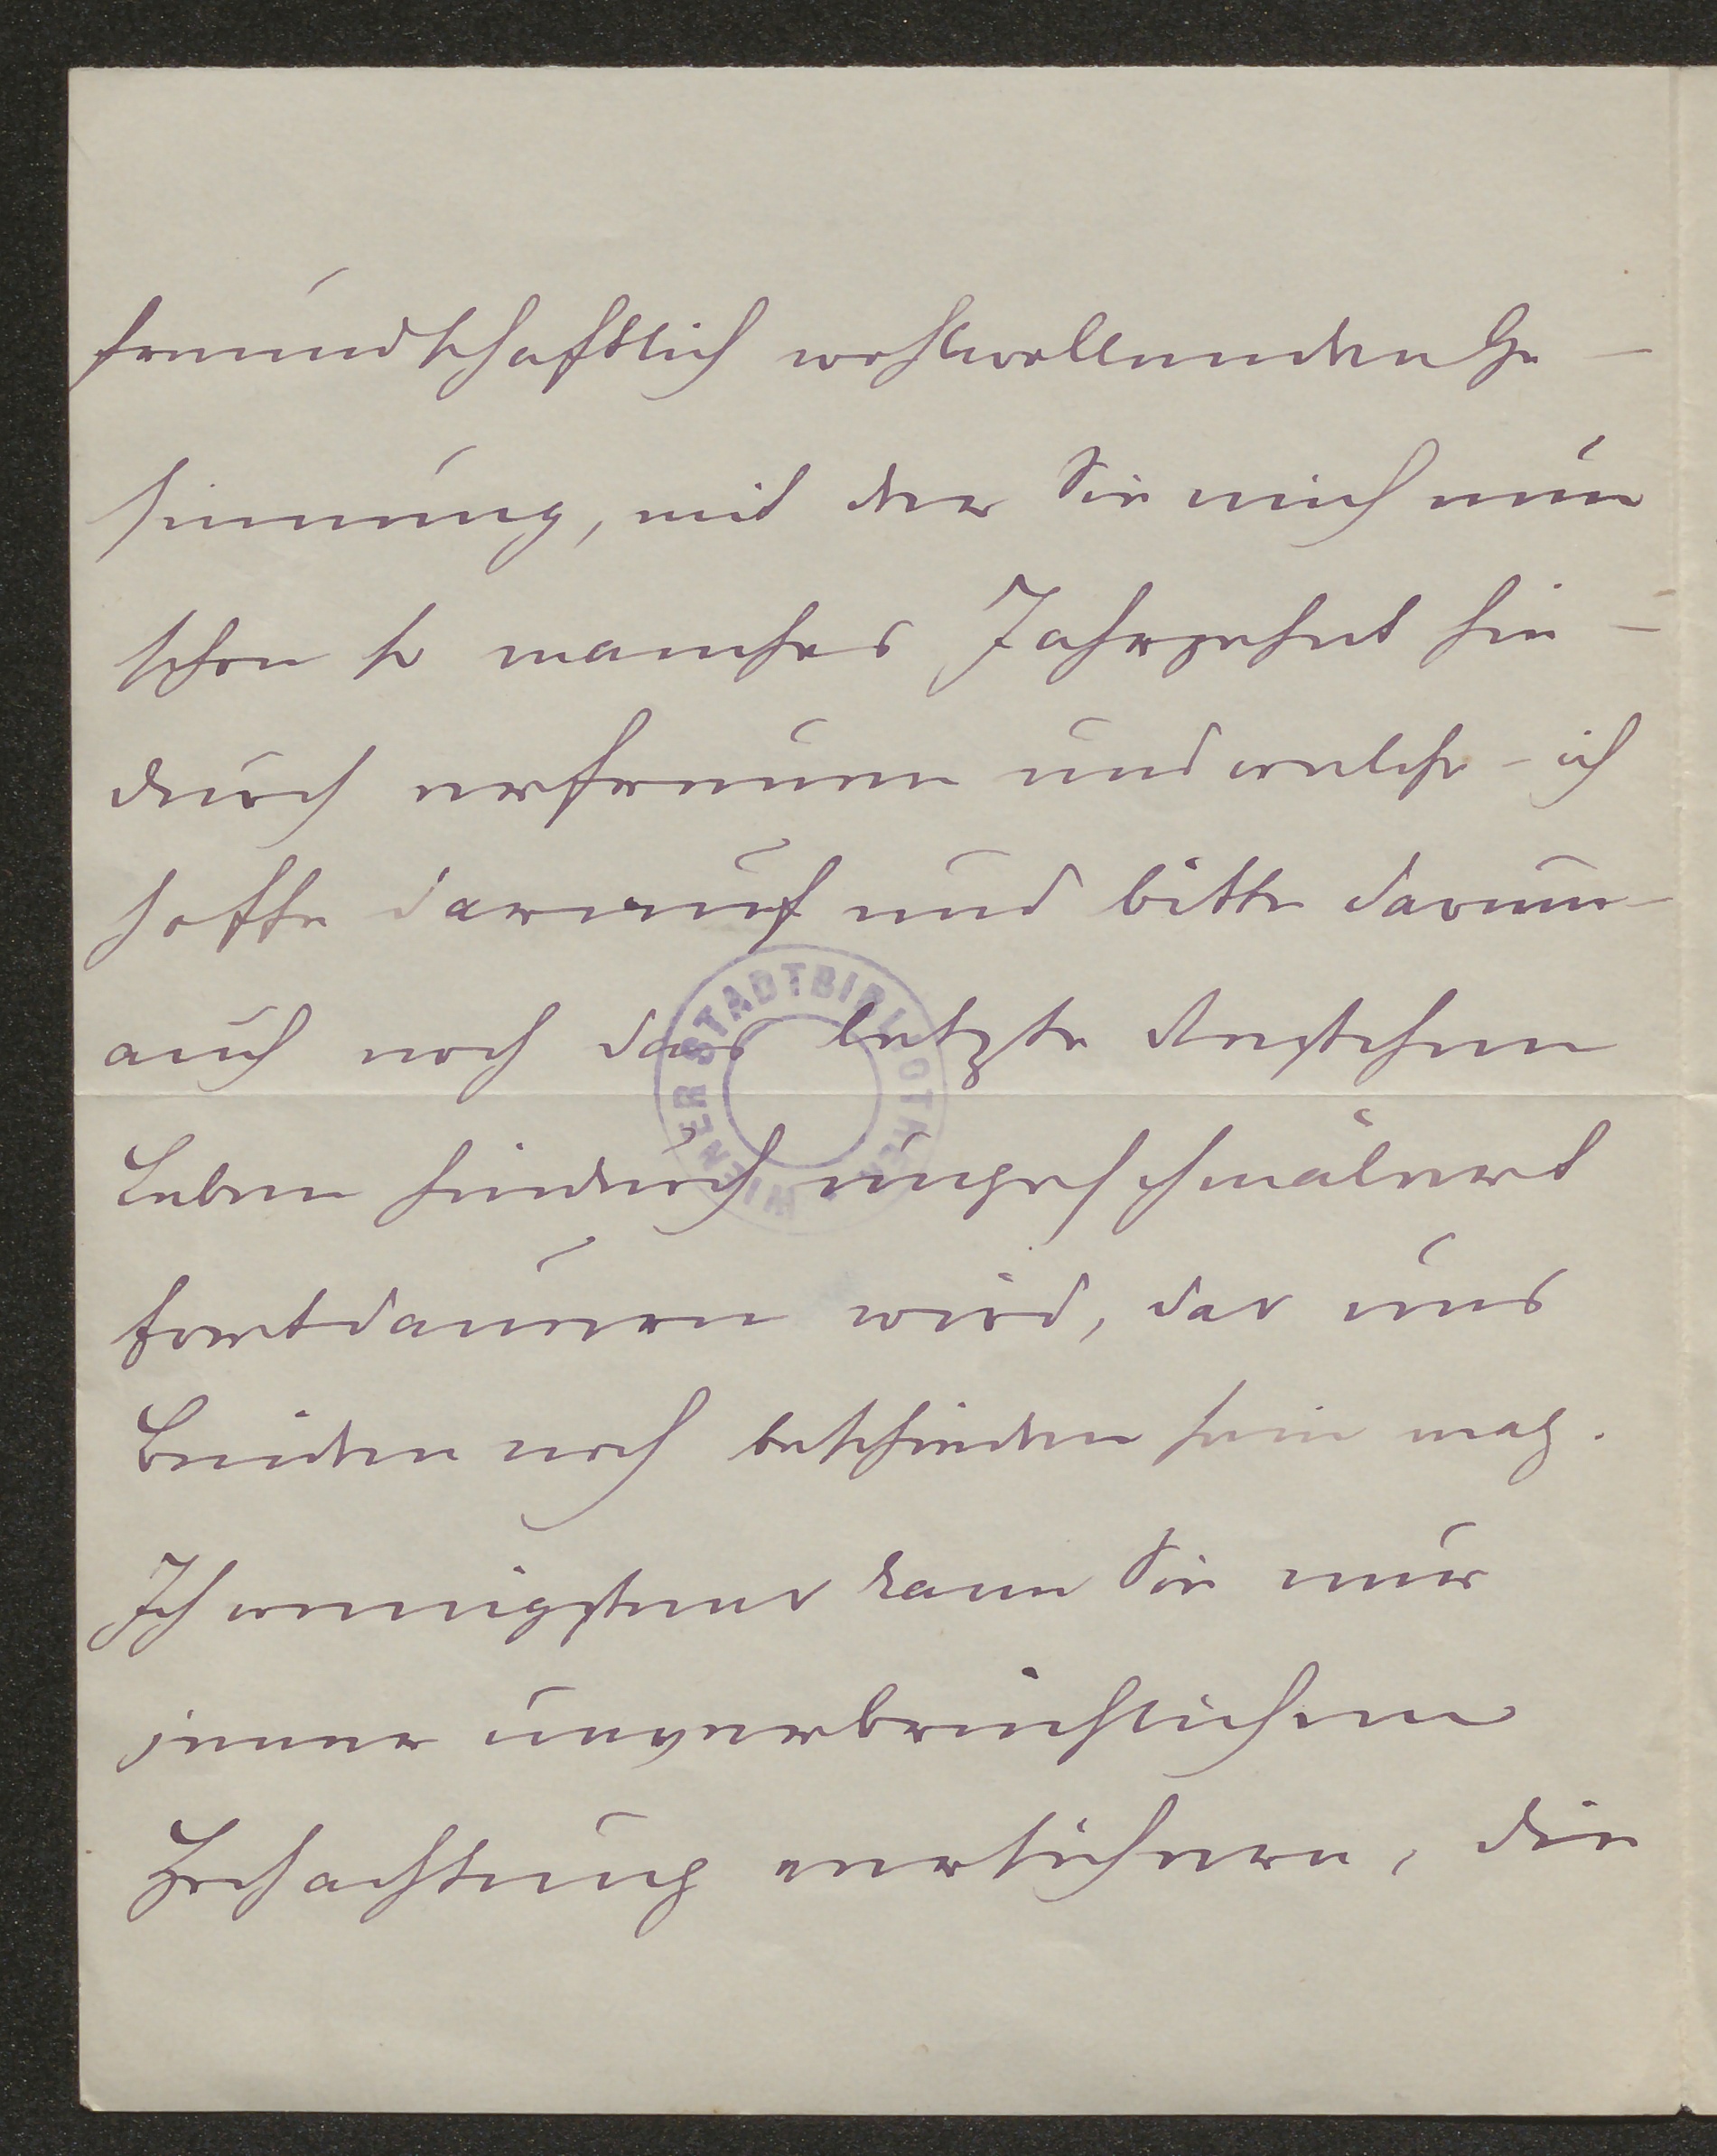 freundschaftlich wohlwollenden Ge-
sinnung, mit der Sie mich nun
schon so manches Jahrzehnt hin-
durch erfreuen und welche - ich
hoffe darauf und bitte darum -
auch noch das letzte Restchen
Leben hindurch ungeschmälert
fortdauern wird, das uns
Beiden noch beschieden sein mag.
Ich wenigstens kann Sie nur
jener unverbrüchlichen
Hochachtung versichern, die
WIENER STADTBIBLIOTHEK